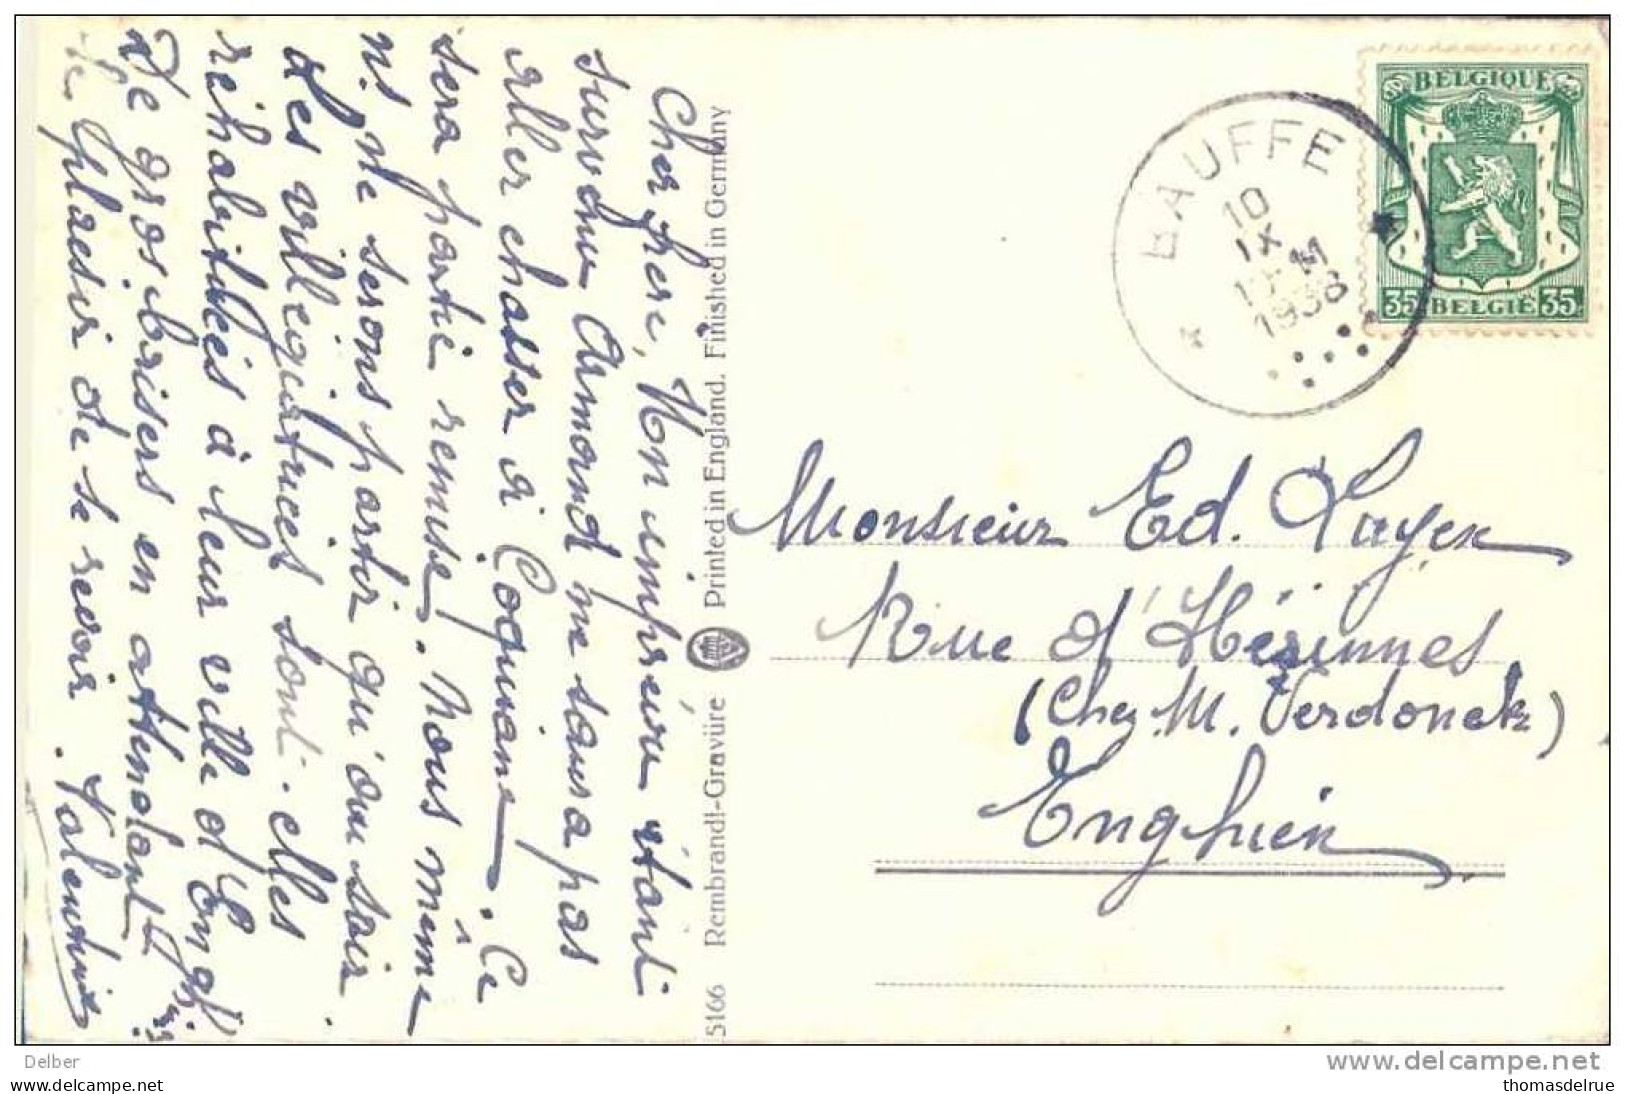 Cher frère, Mon imprévu étant
survenu Armand ne saura pas
aller chasser à Coquiane. Ce
sera partie remise. Nous même
ns. ne serons partir qu'au soir.
Les villegiatrices sont elles
réhabituées à leur ville d'Enghien
De gros baisers en attendant
le plaisir de se revoir. Valentine
5166 Rembrandt-Gravüre Printed in England. Finished in Germany
BELGIQUE
35 BELGIË 35
BAUFFE
10
IX
M
1938
Monsieur Ed. Layen
Rue d'Hérinnes
(Chez M. Verdonck)
Enghien
Delber
delcampe.net
https://www.delcampe.net
thomasdelrue